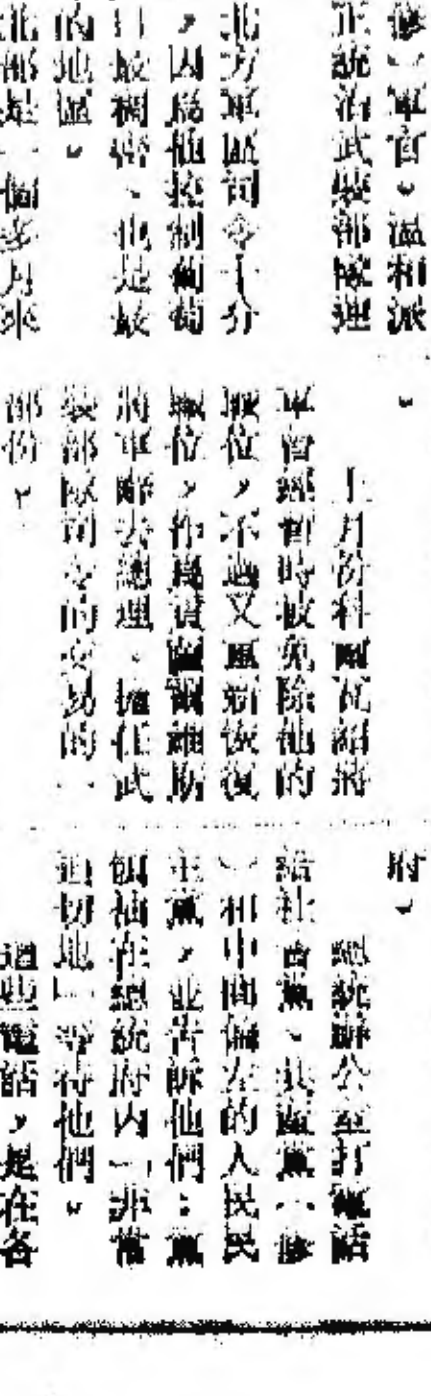 修）軍官。溫和派
正統治武裝部隊
北方軍區司令十分
，因爲他控制葡萄
口最稠密、也是最
的地區。
北部是一個多月來
。
上月份科爾瓦紹將
軍曾經暫時被免除他的
職位，不過又重新恢復
職位，作爲貢薩爾維斯
將軍辭去總理、擔任武
裝部隊司令的交易的一
部份。
府。
總統辦公室打電話
給社會黨、共產黨（修
）和中間偏左的人民民
主黨，並告訴他們：黨
領袖在總統府內「非常
迫切地」等待他們。
這些電話，是在各